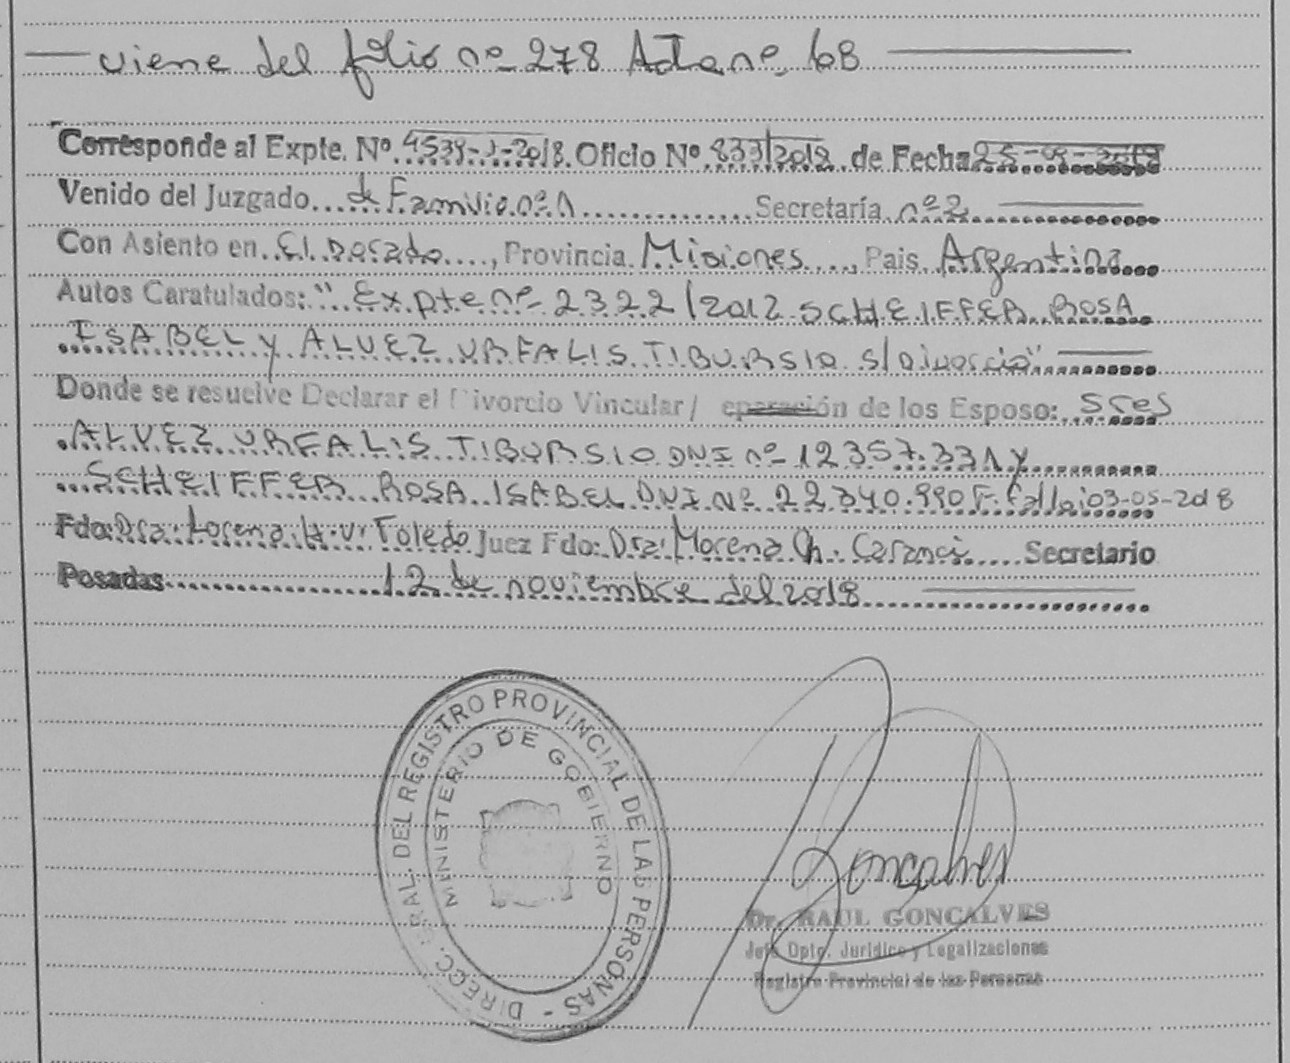 viene del folio nº 278 Acta nº 68
Corresponde al Expte. Nº 4539-J-2018. Oficio Nº 833/2018 de Fecha 25-09-2018
Venido del Juzgado de Familia nº 1 Secretaría nº 2
Con Asiento en El Dorado, Provincia Misiones, Pais Argentina
Autos Caratulados: " Expte nº 2322/2012 SCHEIFFER ROSA
ISABEL y ALVEZ URFALIS TIBURSIO S/Divorcio"
Donde se resuelve Declarar el Divorcio Vincular/ eparación de los Esposo: Sres
ALVEZ URFALIS TIBURSIO DNI nº 12357.331 y
SCHEIFFER ROSA ISABEL DNI Nº 22.340.990 F. Fallo: 03-05-2018
Fdo: Dra: Lorena H.V. Toledo Juez Fdo: Dra: Morena Ch. Secretario
Posadas 12 de noviembre del 2018
DIRECC. GRAL. DEL REGISTRO PROVINCIAL DE LAS PERSONAS -
MINISTERIO DE GOBIERNO
Goncalves
Dr. RAUL GONCALVES
Jefe Dpto. Jurídico y Legalizaciones
Registro Provincial de las Personas